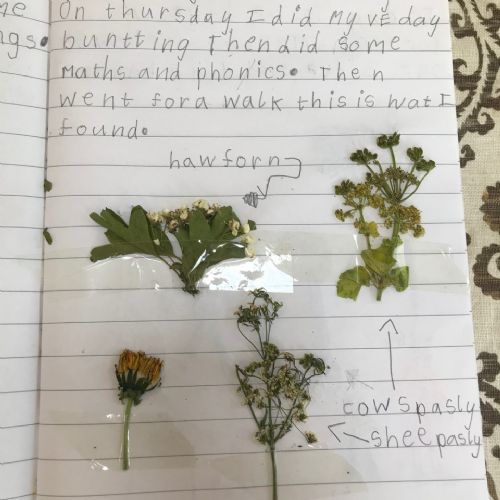 me
ngs.
On thursday I did my VE day
buntting Then did some
Maths and phonics. The n
went for a walk this is wat I
found.
hawforn
cowspasly
sheepasly